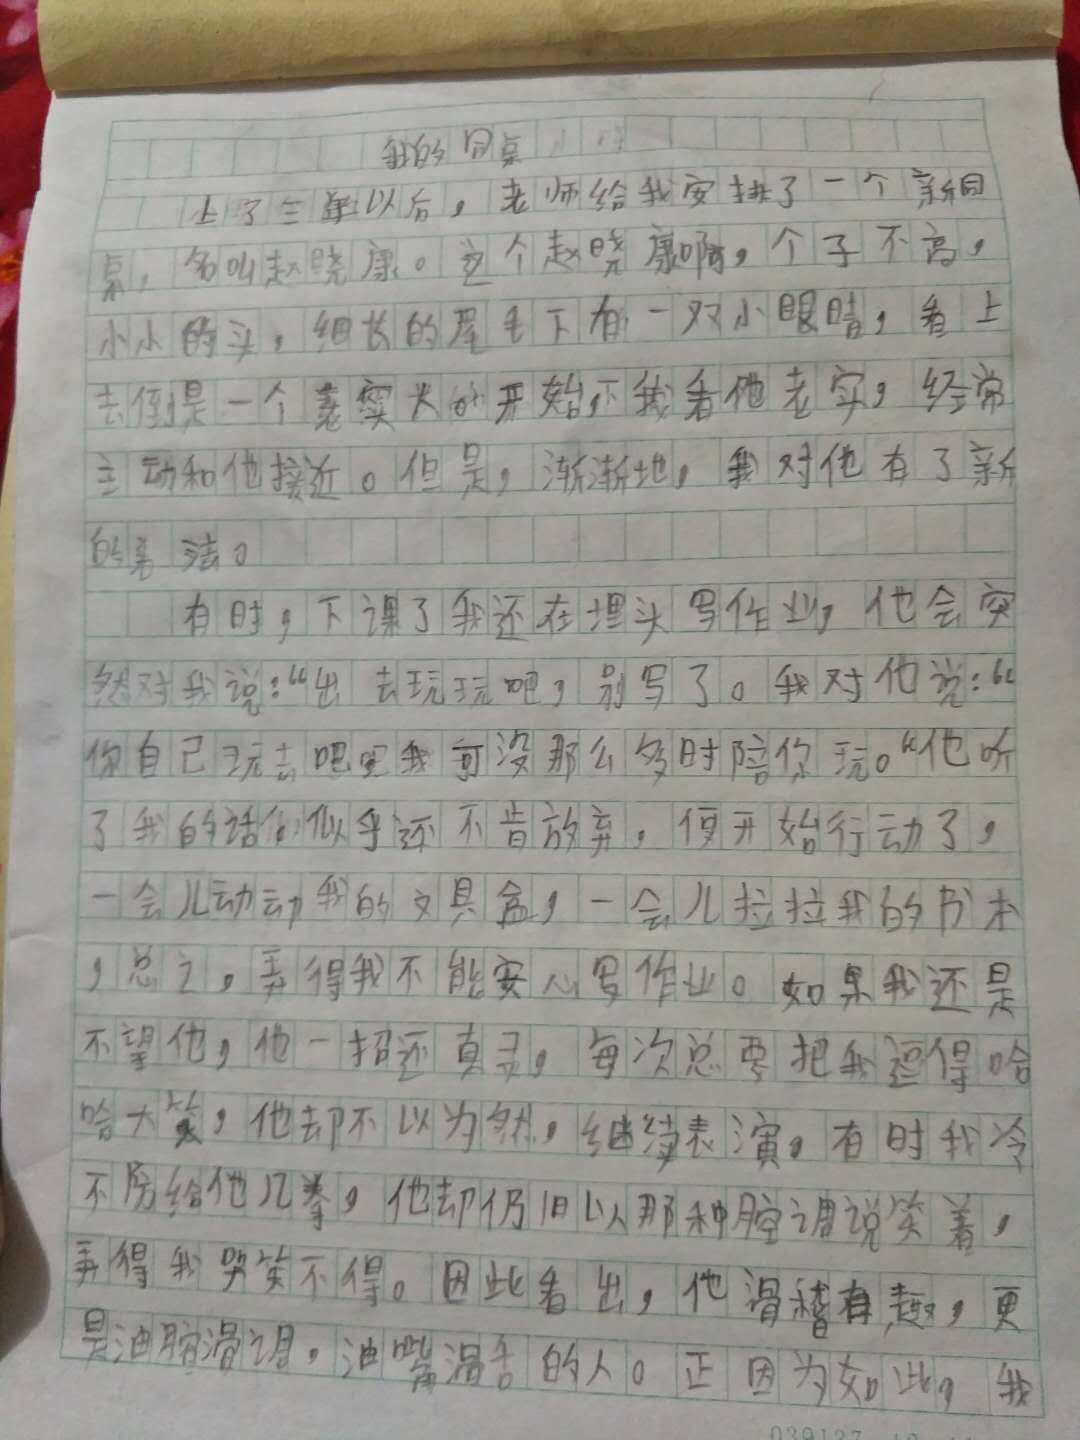 我的同桌
上了三年以后，老师给我安排了一个新同
桌，名叫赵晓康。这个赵晓康啊，个子不高，
小小的头，细长的眉毛下有一双小眼睛，看上
去倒是一个老实人的开始，我看他老实，经常
主动和他接近。但是，渐渐地，我对他有了新
的看法。
有时，下课了我还在埋头写作业，他会突
然对我说：“出去玩玩吧，别写了。我对他说：“
你自己玩去吧我可没那么多时陪你玩。“他听
了我的话似乎还不肯放弃，便开始行动了，
一会儿动动我的文具盒，一会儿拉拉我的书本
，总之，弄得我不能安心写作业。如果我还是
不望他，他一招还真灵，每次总要把我逗得哈
哈大笑，他却不以为然，继续表演，有时我冷
不房给他几拳，他却仍旧以那种腔调说笑着，
弄得我哭笑不得。因此看出，他滑稽有趣，更
是油腔滑调，油嘴滑舌的人。正因为如此，我
039127